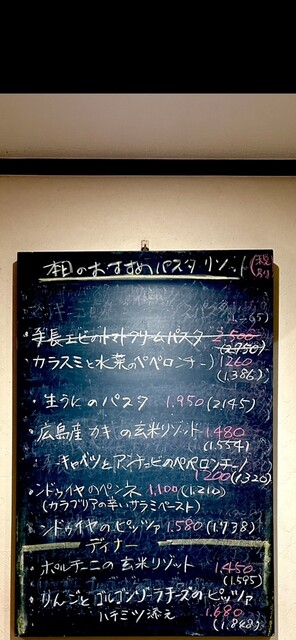 本日のおすすめパスタリゾット(税別)
手長エビのトマトクリームパスタ 2,500
(2,750)
カラスミと水菜のペペロンチーノ 1260
(1,386)
・生うにのパスタ 1.950(2145)
・広島産カキの玄米リゾット 1.480
(1.554)
キャベツとアンチョビのペペロンチーノ
1200(1320)
・ンドゥイヤのペンネ 1,100(1.210)
(カラブリアの辛いサラミペースト)
・ンドゥイヤのピッツァ 1.580(1,738)
ディナー
・ポルチーニの玄米リゾット 1,450
(1.595)
・りんごとゴルゴンゾーラチーズのピッツァ
ハチミツ添え 1.680
(1.848)